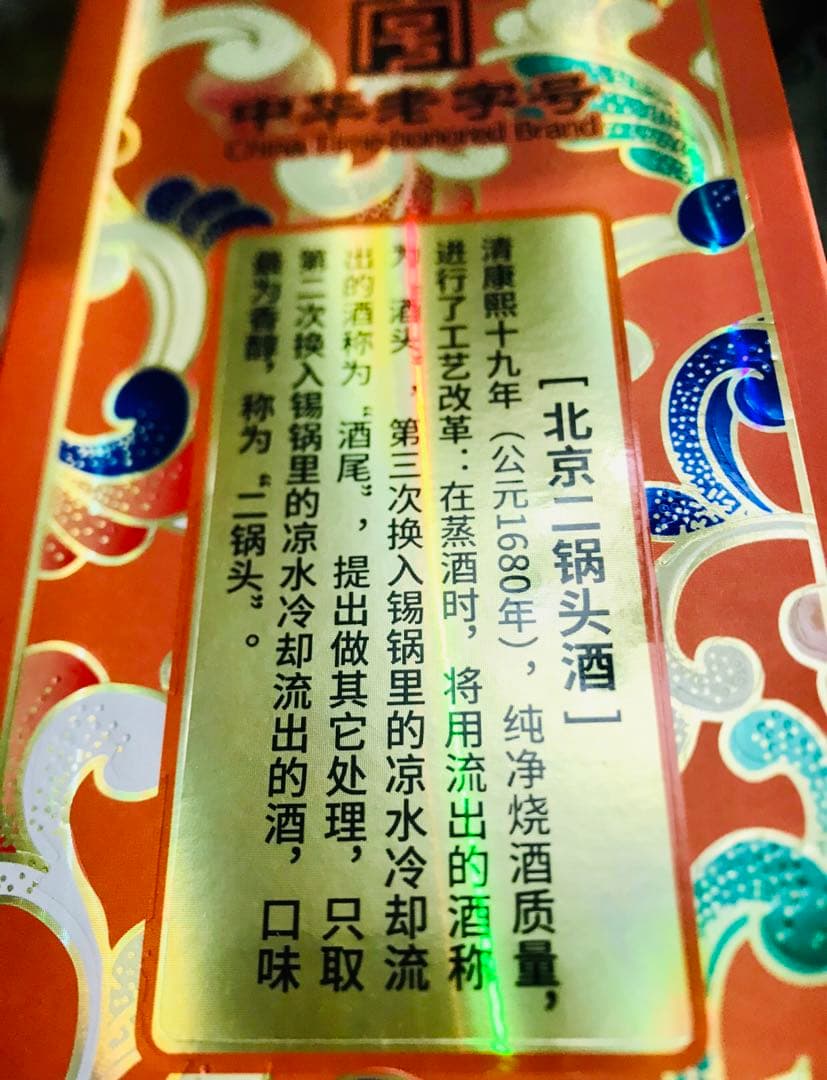 中华老字号
China Time-honored Brand
[北京二锅头酒]
清康熙十九年（公元1680年），纯净烧酒质量，
进行了工艺改革：在蒸酒时，将用流出的酒称
为“酒头”，第三次换入锡锅里的凉水冷却流
出的酒称为“酒尾”，提出做其它处理，只取
第二次换入锡锅里的凉水冷却流出的酒，口味
最为香醇，称为“二锅头”。